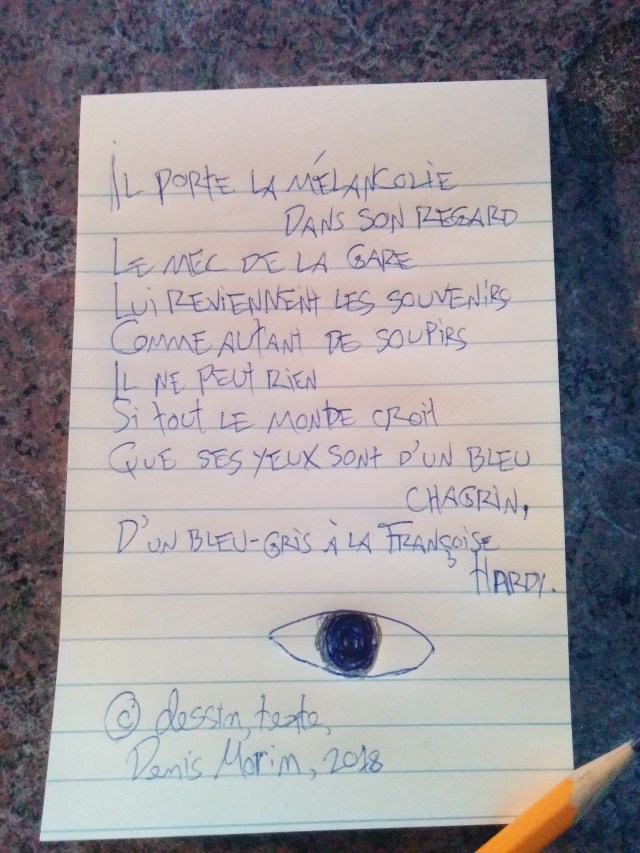 IL PORTE LA MÉLANCOLIE
DANS SON REGARD
LE MEC DE LA GARE
LUI REVIENNENT LES SOUVENIRS
COMME AUTANT DE SOUPIRS
IL NE PEUT RIEN
SI TOUT LE MONDE CROIT
QUE SES YEUX SONT D'UN BLEU
CHAGRIN,
D'UN BLEU-GRIS À LA FRANÇOISE
HARDY.
© dessin, texte,
Denis Morin, 2018